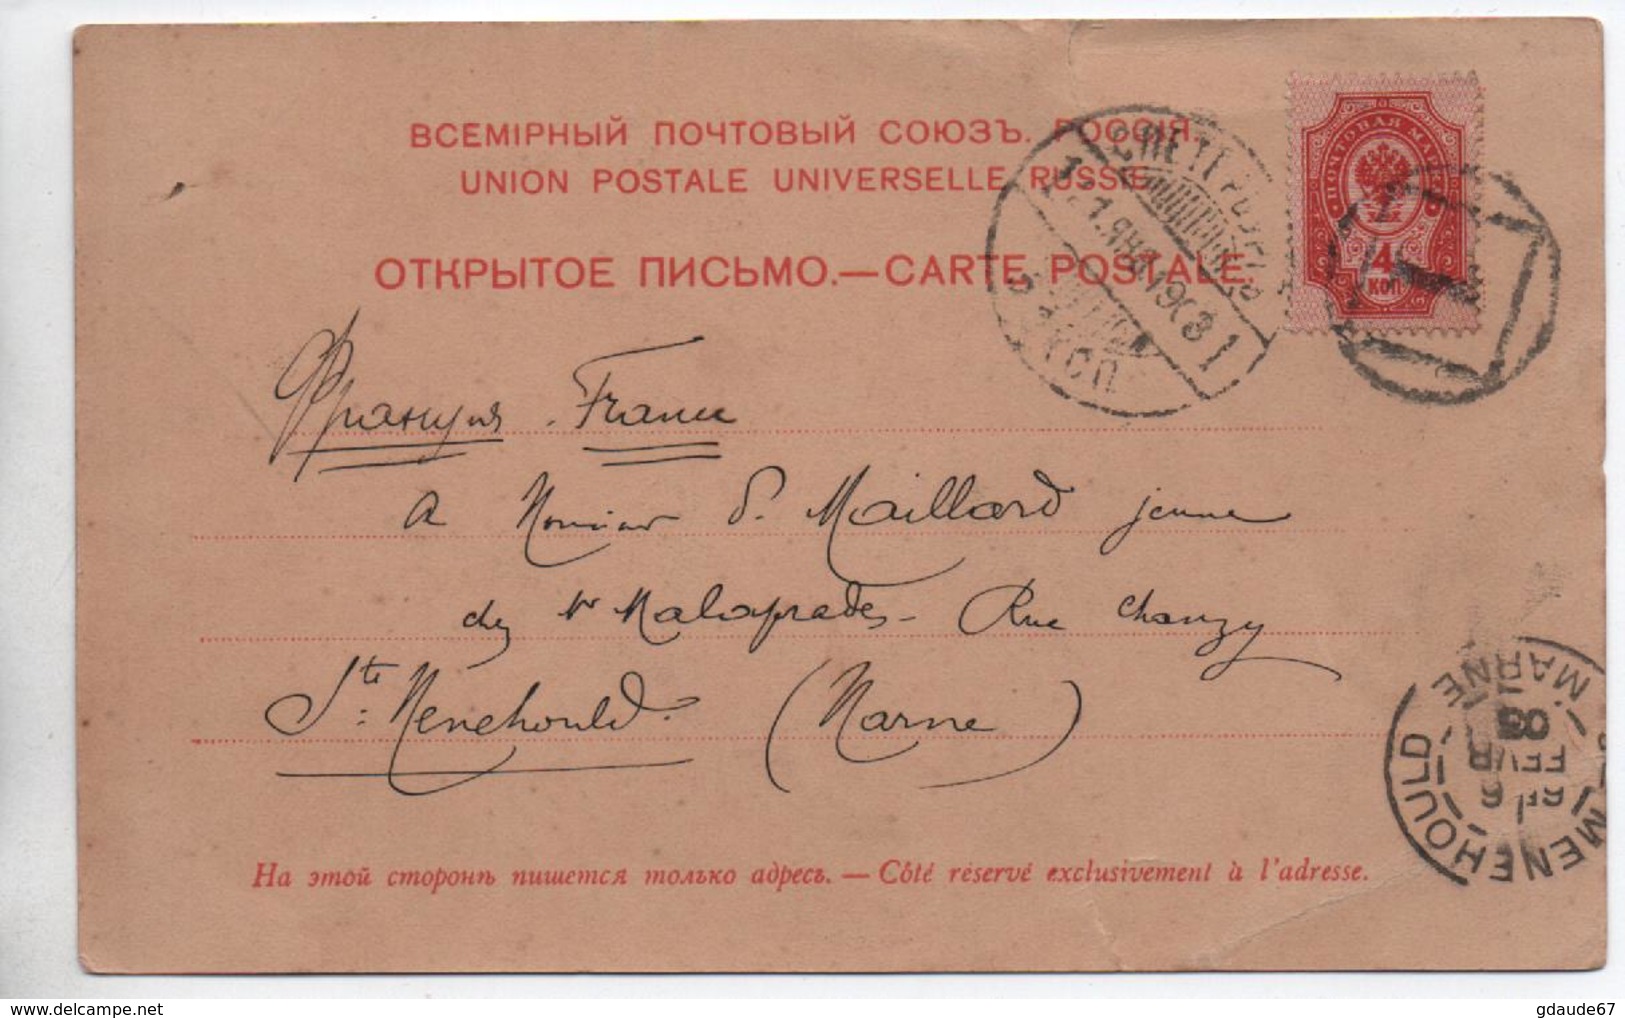 ВСЕМІРНЫЙ ПОЧТОВЫЙ СОЮЗЪ. РОССІЯ.
UNION POSTALE UNIVERSELLE RUSSIE
ОТКРЫТОЕ ПИСЬМО.—CARTE POSTALE.
ПОЧТОВАЯ МАР
4
КОП
1903
Франция . France
a Monsieur P. Maillard jeune
chez Mr Malaprades - Rue Chanzy
Ste: Menehould. (Marne)
MENEHOULD
MARNE
6
FEVR
03
На этой сторонѣ пишется только адресъ. — Côté réservé exclusivement à l'adresse.
gdaude67